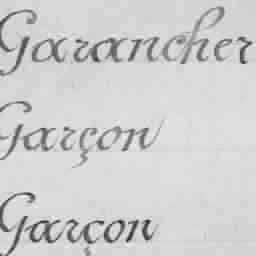 Garancher
Garçon
Garçon